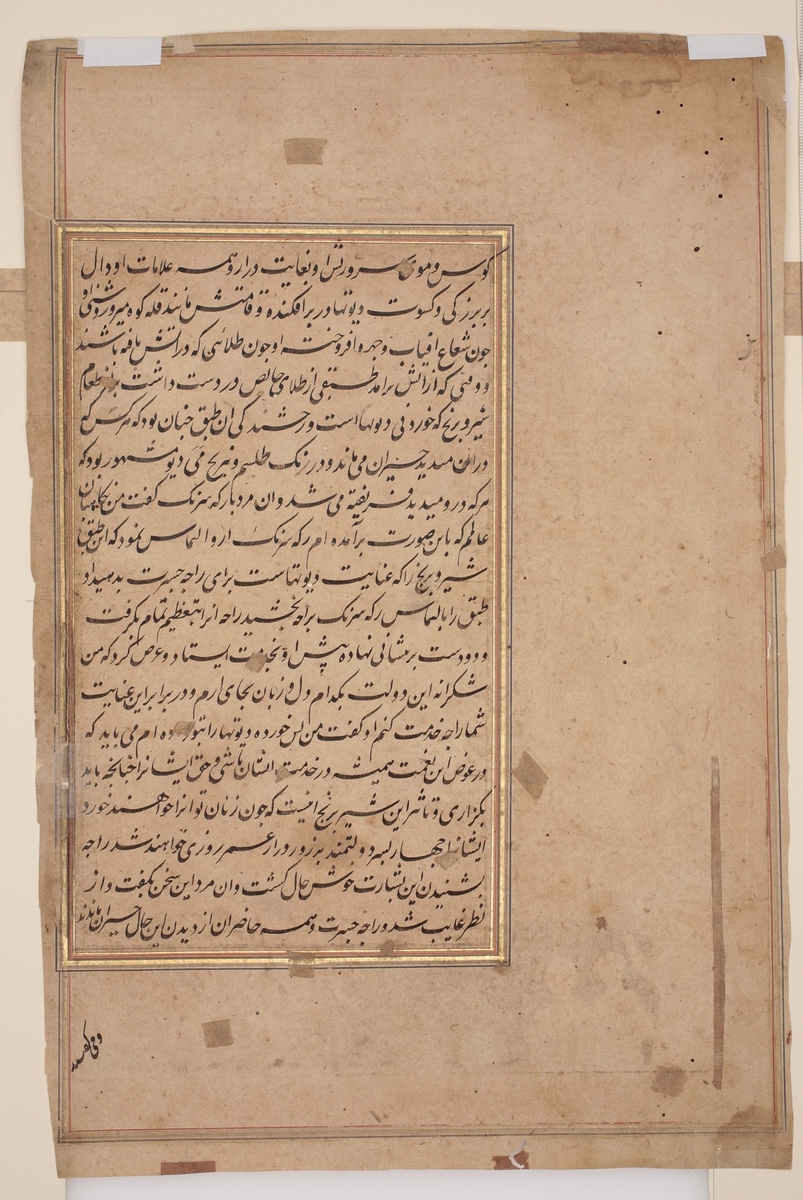 کوس و موی سر و ریش او بغایت دراز و همه علامات او دال
بر بزرگی و کسوت دیوتها در بر افکنده و قامتش مانند قله کوه میرورد شنی او
چون شعاع افتاب و چهره افروخته او چون طلائی که در اتش تافته باشند
و وقتی که از اتش برامد طبقی از طلای خالص در دست داشت پر از طعام
شیر و برنج که خوردنی دیوتها است و رخشندگی ان طبق چنان بود که هر کس که
در ان میدید حیران می ماند و در رنگ طلسم و نیرنج می دیو مشهور بود که
هر که درو میدید فریفته می شد و ان مرد با رکه سرنک گفت من بجانب
عالم که باین صورت برآمده ام رکه سرنک ازو التماس نمود که این طبق
شیر و برنج را که عنایت دیوتهاست برای راجه جسرت بدهید او
طبق را بالتماس رکه سرنک براجه بخشید راجه انرا بتعظیم تمام بگرفت
و دو دست بر پیشانی نهاده پیش او بخدمت ایستاد و عرض کرد که من
شکرانه این دولت بکدام دل و زبان بجای ارم و در برابر این عنایت
شما را چه خدمت کنم او گفت من پس خورده دیوتها را بتو ده ام می باید که
در عوض این نعمت همیشه در خدمت ایشان باشی و حق ایشانرا چنانچه باید
بگزاری و تاثیر این شیر برنج انیست که چون زنان تو انرا خواهند خورد
ایشانرا چهار پسر دولتمند پر زور دراز عمر روزی خواهند شد راجه
بشنیدن این بشارت خوش حال گشت و ان مرد این سخن بگفت و از
نظر غایب شد و راجه جسرت و همه حاضران از دیدن این حال حیران ماندند